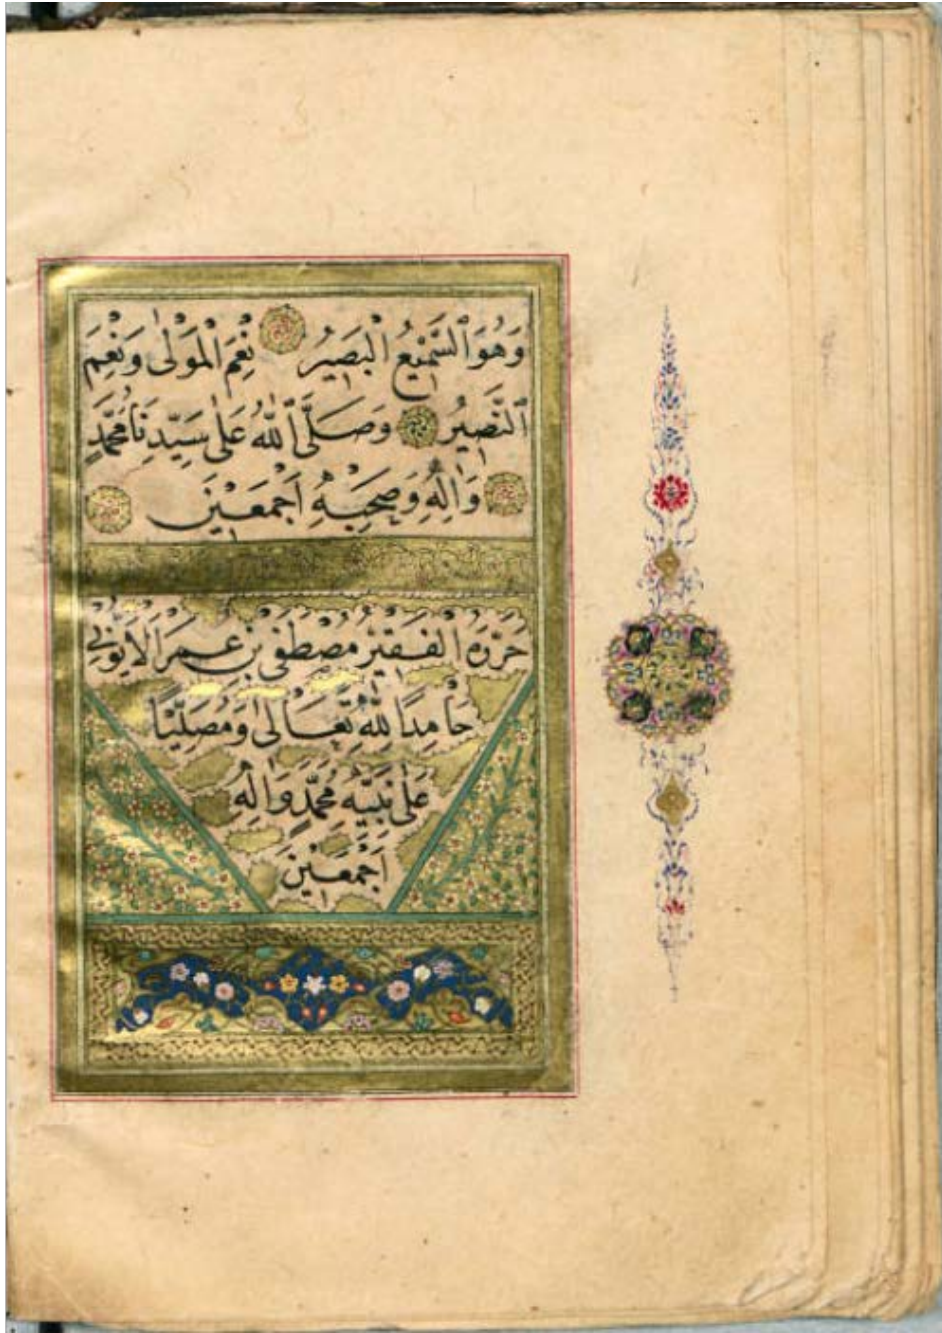 وَهُوَ السَّمِيعُ الْبَصِيرُ نِعْمَ الْمَوْلٰى وَنِعْمَ
النَّصِيرُ وَصَلَّى اللّٰهُ عَلٰى سَيِّدِنَا مُحَمَّدٍ
وَاٰلِهِ وَصَحْبِهِ اَجْمَعِينَ
حَرَّرَهُ الْفَقِيرُ مُصْطَفٰى بْنُ عُمَرَ
حَامِدًا لِلّٰهِ تَعَالٰى وَمُصَلِّيًا
عَلٰى نَبِيِّهِ مُحَمَّدٍ وَاٰلِهِ
اَجْمَعِينَ